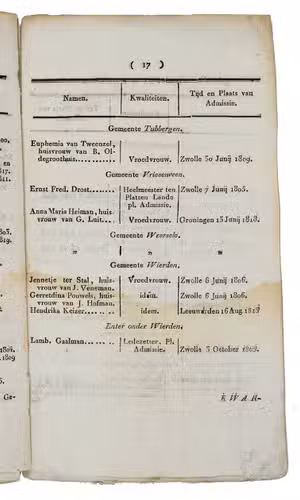 ( 17 )
Namen. Kwaliteiten. Tijd en Plaats van
Admissie.
Gemeente Tubbergen.
Euphemia van Tweenzol,
huisvrouw van B. Ol-
degroothuis........... Vroedvrouw. Zwolle 30 Junij 1809.
Gemeente Vriesenveen.
Ernst Fred. Drost........ Heelmeester ten Zwolle 7 Junij 1805.
Platten Lande
pl. Admissie.
Anna Maria Heiman, huis-
vrouw van G. Luit..... Vroedvrouw. Groningen 15 Junij 1818.
Gemeente Weerselo.
" " "
Gemeente Wierden.
Jennetje ter Stal, huis-
vrouw van J. Veneman. Vroedvrouw. Zwolle 6 Junij 1806.
Gerretdina Pouwels, huis-
vrouw van J. Hofman. idem. Zwolle 6 Junij 1806.
Hendrika Keizer........ idem. Leeuwarden 16 Aug. 1813
Enter onder Wierden.
Lamb. Gaalman........ Ledezetter, Pl.
Admissie. Zwolle 3 October
K W A R-